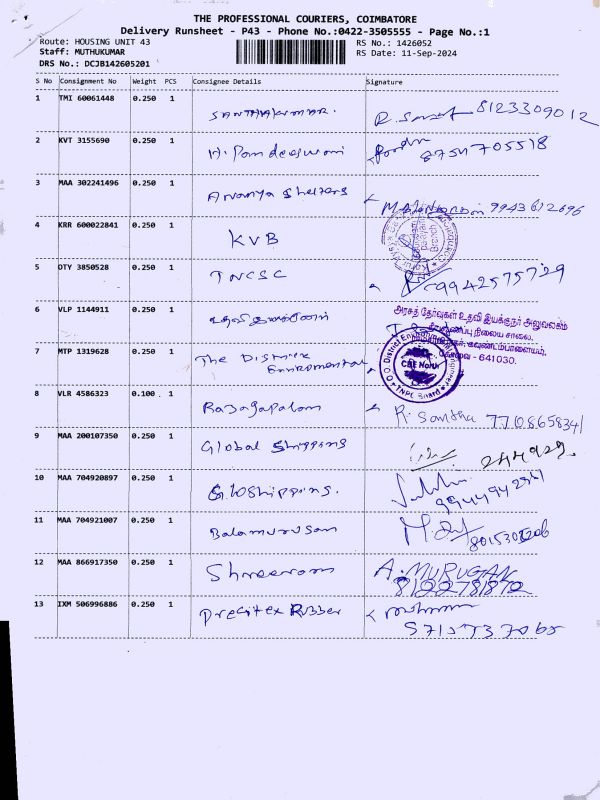 THE PROFESSIONAL COURIERS, COIMBATORE
Delivery Runsheet - P43 - Phone No.:0422-3505555 - Page No.:1
Route: HOUSING UNIT 43
RS No.: 1426052
Staff: MUTHUKUMAR
RS Date: 11-Sep-2024
DRS No.: DCJB142605201
S No Consignment No Weight PCS Consignee Details Signature
1 TMI 60061448 0.250 1 SANTHAKUMAR. 8123309012
2 KVT 3155690 0.250 1 8754705518
3 MAA 302241496 0.250 1 Ananya Shelters 9943612696
4 KRR 600022841 0.250 1 KVB
5 OTY 3850528 0.250 1 TNCSC 9942575729
6 VLP 1144911 0.250 1
அரசுத் தேர்வுகள் உதவி இயக்குநர் அலுவலகம்
கோவை - 641030.
7 MTP 1319628 0.250 1 The District Enviromental
CBE North
TNPC Board
8 VLR 4586323 0.100 . 1 Rajagapalam R. Santha
9 MAA 200107350 0.250 1 Global Shipping 244929.
10 MAA 704920897 0.250 1
11 MAA 704921007 0.250 1 Balamurugan
12 MAA 866917350 0.250 1 Shreeram A. MURUGAN
8122781872
13 IXM 506996886 0.250 1 Precitex Rubber